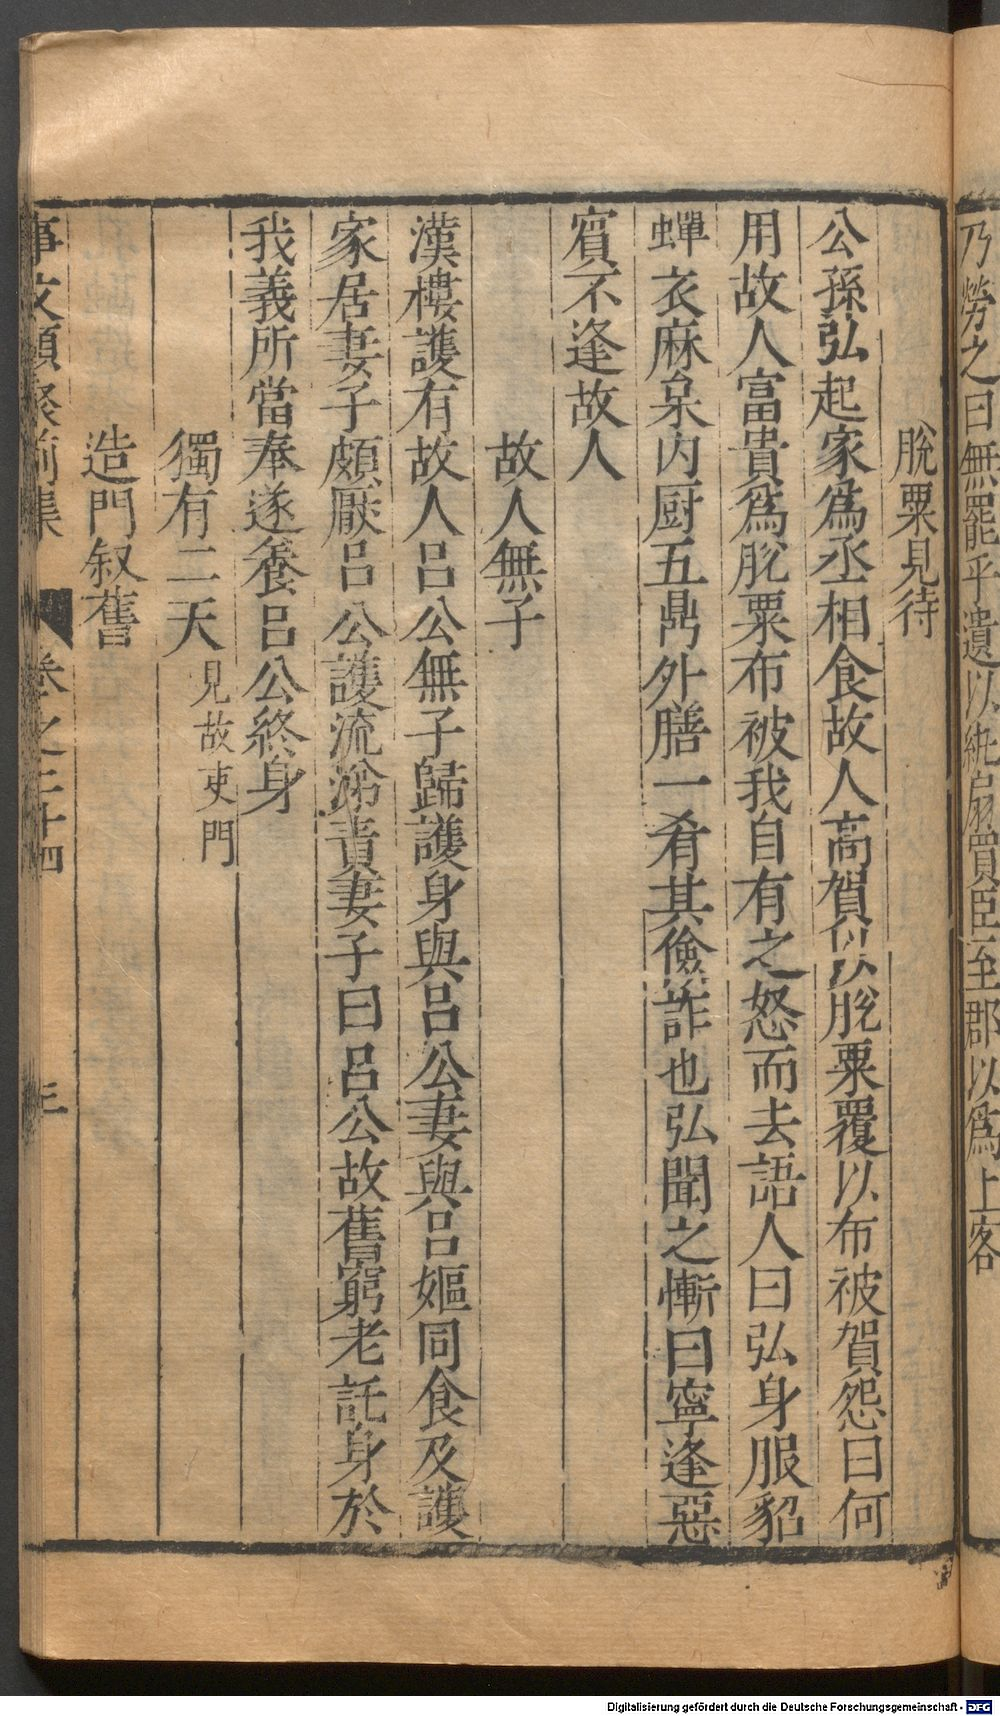 乃勞之曰無罷乎遺以紈扇買臣至郡以爲上客
脫粟見待
公孫弘起家爲丞相食故人高賀以脫粟覆以布被賀怨曰何
用故人富貴爲脫粟布被我自有之怒而去語人曰弘身服貂
蟬衣麻枲内厨五鼎外膳一肴其儉詐也弘聞之慚曰寧逢惡
賔不逢故人
故人無子
漢樓護有故人吕公無子歸護身與吕公妻與吕嫗同食及護
家居妻子頗厭吕公護流涕責妻子曰吕公故舊窮老託身於
我義所當奉遂養吕公終身
獨有二天見故吏門
造門叙舊
事文類聚前集 卷之二十四 三
Digitalisierung gefördert durch die Deutsche Forschungsgemeinschaft - DFG